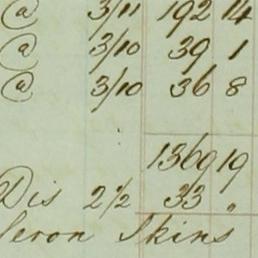 @ 3/11 192 14
@ 3/10 39 1
@ 3/10 36 8
1369 19
Dis 2½ 33 "
Seron Skins